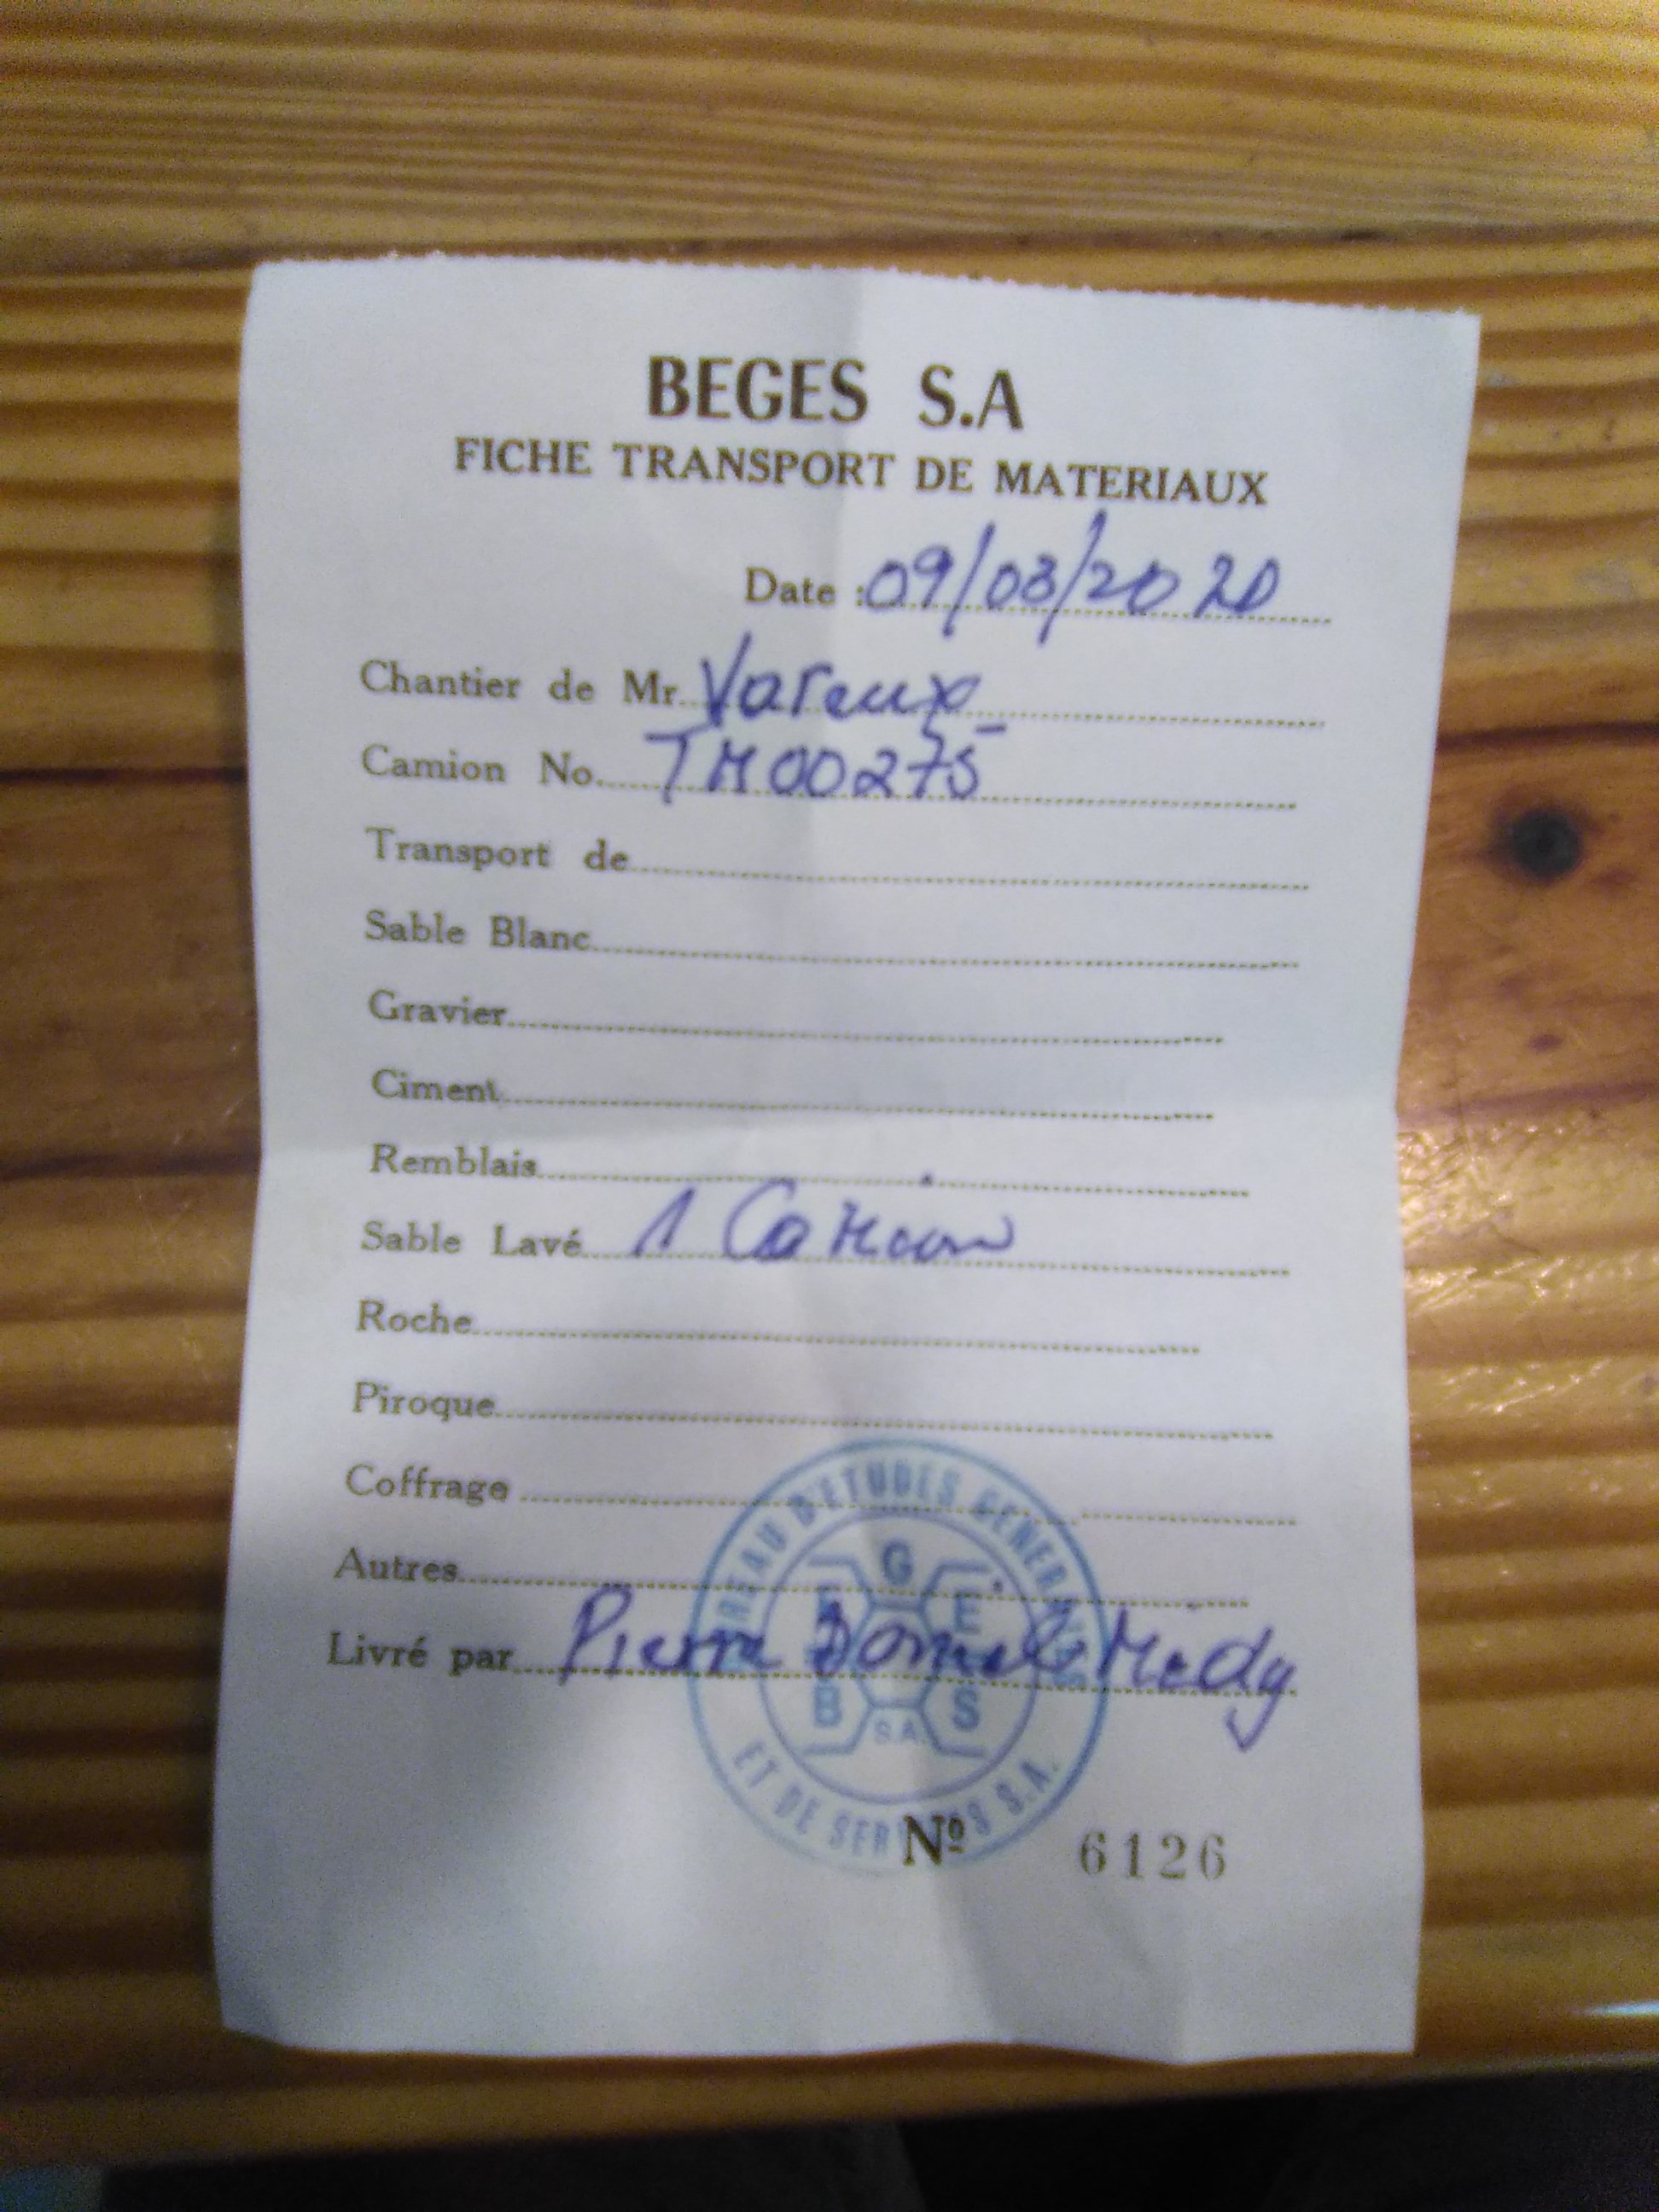 BEGES S.A
FICHE TRANSPORT DE MATERIAUX
Date : 09/03/2020
Chantier de Mr. Vareux
Camion No. TM00275
Transport de
Sable Blanc
Gravier
Ciment
Remblais
Sable Lavé 1 Camion
Roche
Piroque
Coffrage
Autres
Livré par Pierre Medy
BUREAU D'ETUDES GENERALES
G
E
B S
S.A.
ET DE SERVICES S.A.
Nº 6126